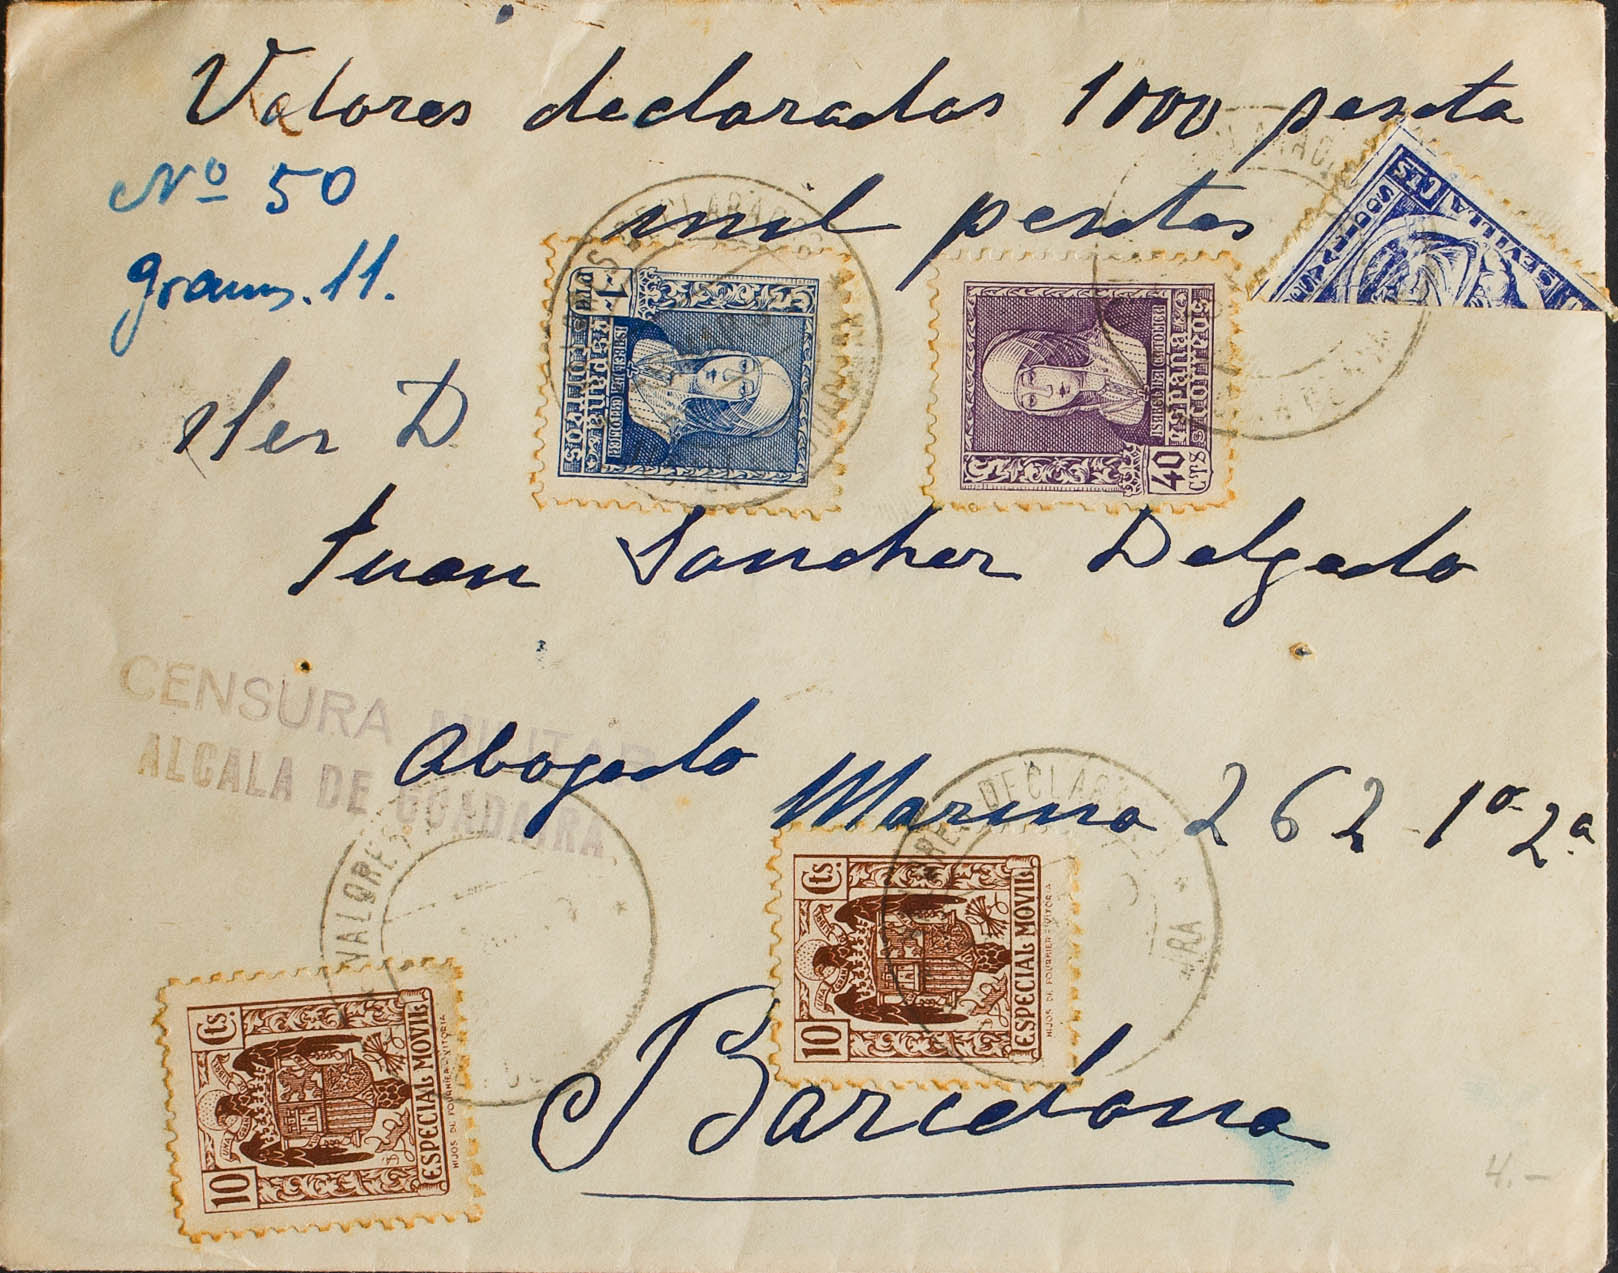 Valores declarados 1000 peseta
Nº 50
mil pesetas
grams. 11.
D
Juan Sanchez Delgado
Abogado
Marina 262 1º 2ª
Barcelona
CENSURA MILITAR
ALCALA DE GUADAIRA
1 PTA
ISABEL LA CATOLICA
ESPAÑA
CORREOS
40 CTS
ISABEL LA CATOLICA
ESPAÑA
CORREOS
CTS
SEVILLA
VALORES
VALORES DECLARADOS
10 Cts.
UNA GRANDE LIBRE
ESPECIAL MOVIL
HIJOS DE FOURNIER-VITORIA
10 Cts.
UNA GRANDE LIBRE
ESPECIAL MOVIL
HIJOS DE FOURNIER-VITORIA
4.-